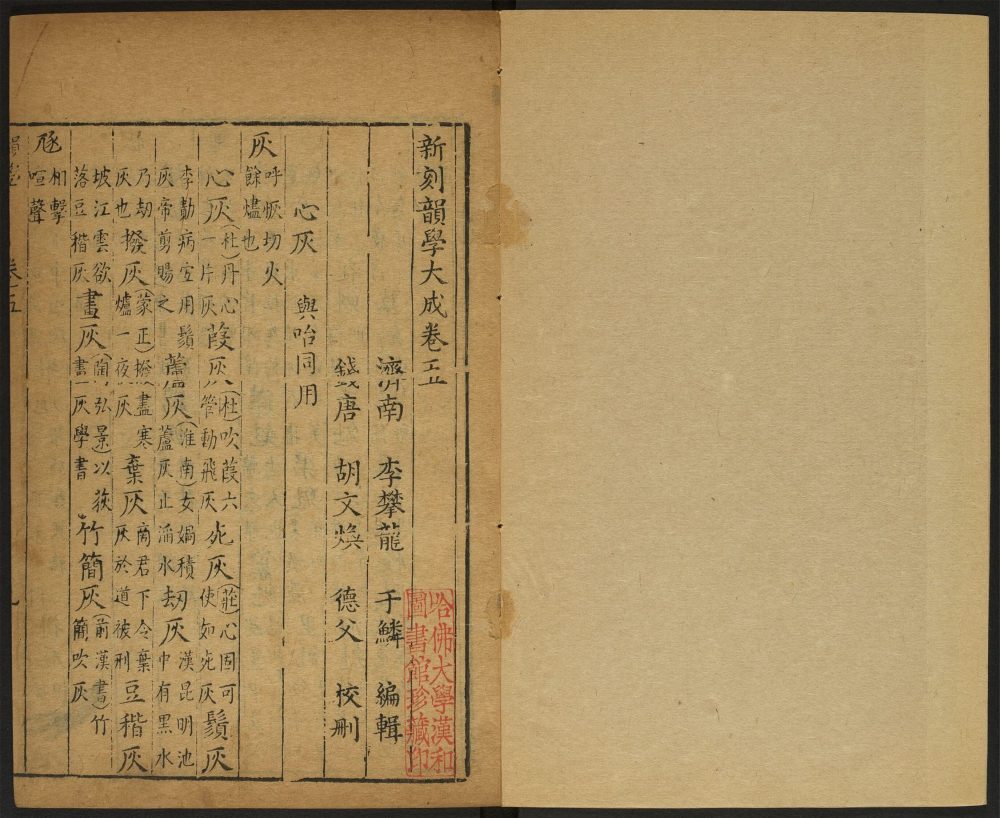 新刻韻學大成卷五
濟南 李攀龍 于鱗 編輯
錢唐 胡文煥 德父 校刪
心灰 與咍同用
灰 呼恢切火餘燼也
心灰 (杜)丹心一片灰 葭灰 (杜)吹葭六管動飛灰 死灰 (莊)心固可使如死灰 鬚灰
李勣病宜用鬚灰帝剪賜之 蘆灰 (淮南)女媧積蘆灰止滛水 刼灰 漢昆明池中有黑水
乃刼灰也 撥灰 (蒙正)撥盡寒爐一夜灰 棄灰 商君下令棄灰於道被刑 豆稭灰
坡江雲欲落豆稭灰 畫灰 (陶弘景)以荻畫灰學書 竹簡灰 (前漢書)竹簡吹灰
豗 相擊喧聲
卷五
哈佛大學漢和
圖書館珍藏印